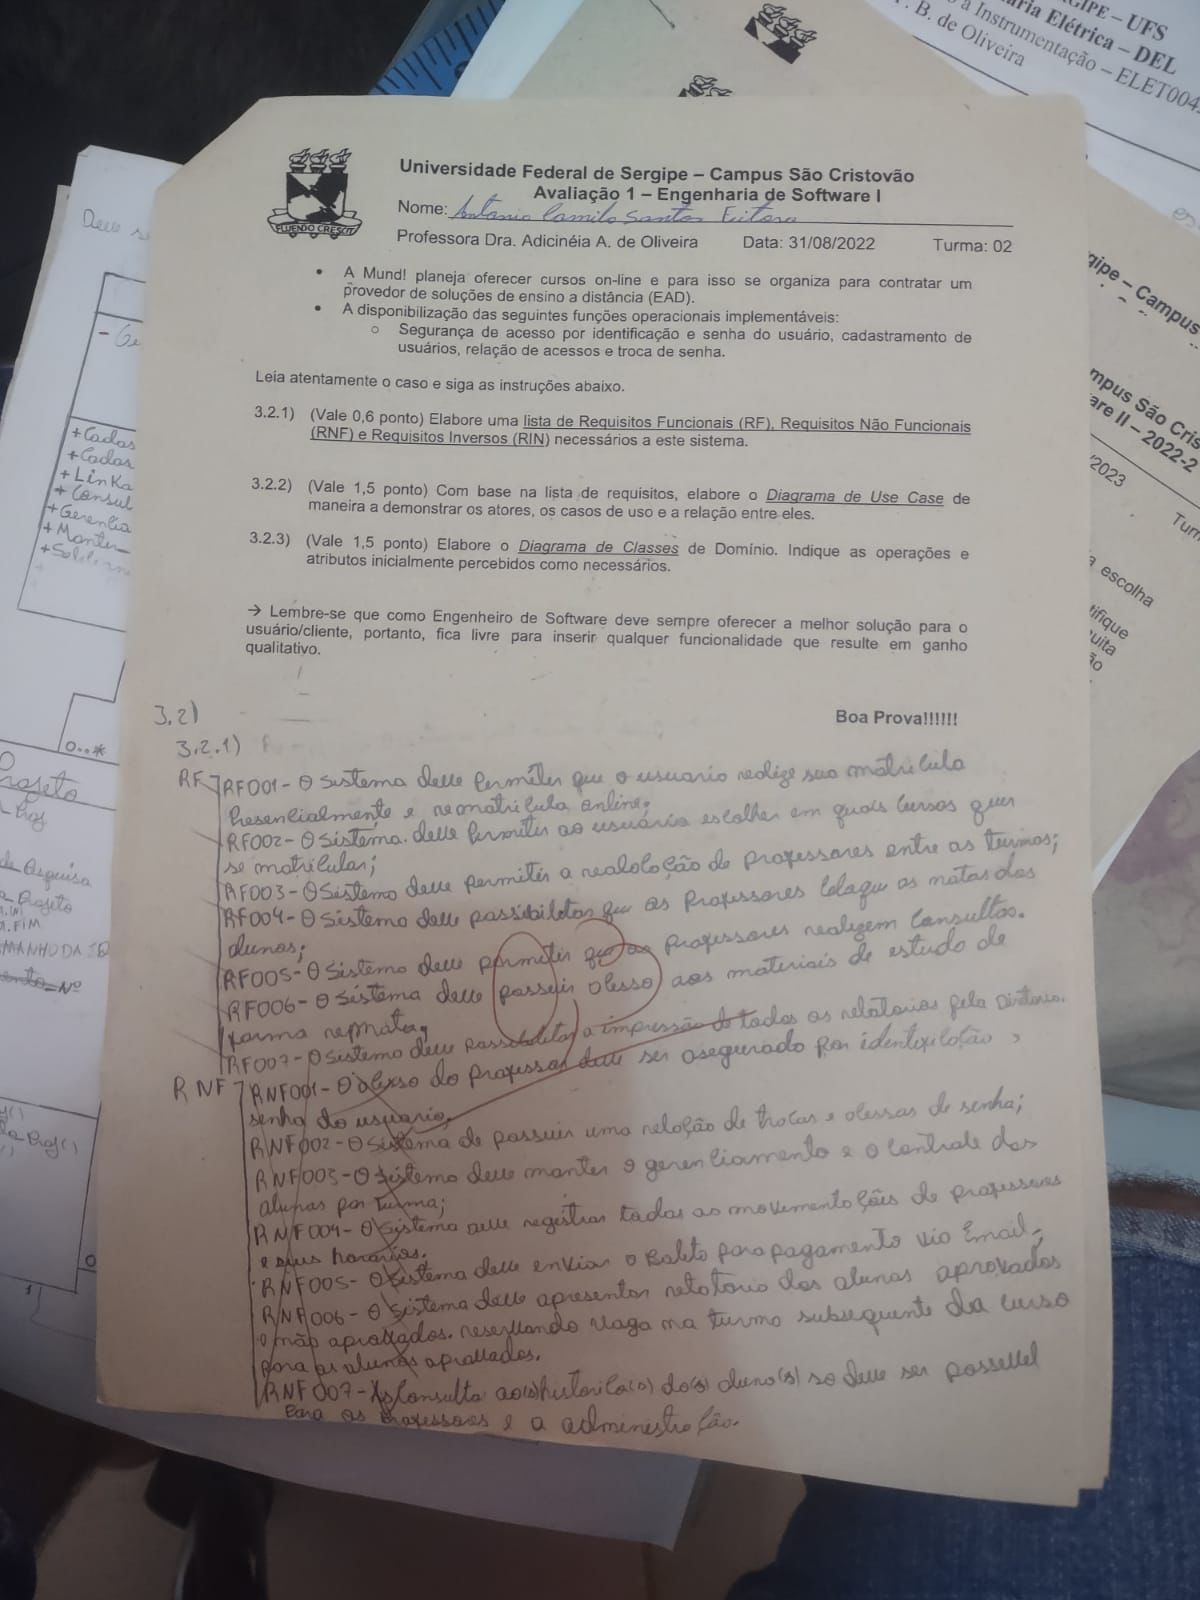 GIPE – UFS
aria Elétrica – DEL
à Instrumentação – ELET004
B. de Oliveira
Universidade Federal de Sergipe – Campus São Cristovão
Avaliação 1 – Engenharia de Software I
Nome: Antonio Camilo Santos Feitosa
Professora Dra. Adicinéia A. de Oliveira Data: 31/08/2022 Turma: 02
FLUENDO CRESCIT
• A Mund! planeja oferecer cursos on-line e para isso se organiza para contratar um
provedor de soluções de ensino a distância (EAD).
• A disponibilização das seguintes funções operacionais implementáveis:
o Segurança de acesso por identificação e senha do usuário, cadastramento de
usuários, relação de acessos e troca de senha.
Leia atentamente o caso e siga as instruções abaixo.
3.2.1) (Vale 0,6 ponto) Elabore uma lista de Requisitos Funcionais (RF), Requisitos Não Funcionais
(RNF) e Requisitos Inversos (RIN) necessários a este sistema.
3.2.2) (Vale 1,5 ponto) Com base na lista de requisitos, elabore o Diagrama de Use Case de
maneira a demonstrar os atores, os casos de uso e a relação entre eles.
3.2.3) (Vale 1,5 ponto) Elabore o Diagrama de Classes de Domínio. Indique as operações e
atributos inicialmente percebidos como necessários.
→ Lembre-se que como Engenheiro de Software deve sempre oferecer a melhor solução para o
usuário/cliente, portanto, fica livre para inserir qualquer funcionalidade que resulte em ganho
qualitativo.
Boa Prova!!!!!!
3.2)
3.2.1)
RF RF001- O Sistema deve Permitir que o usuario realize sua matricula
Presencialmente e rematricula online;
RF002- O Sistema deve Permitir ao usuário escolher em quais cursos quer
se matricular;
RF003- O Sistema deve permitir a realocação de professores entre as turmas;
RF004- O Sistema deve possibilitar que os Professores coloque as notas dos
alunos;
RF005- O Sistema deve permitir que os professores realizem consultas.
RF006- O Sistema deve possuir acesso aos materiais de estudo de
forma remota;
RF007- O Sistema deve possibilitar a impressão de todos os relatorios pela Diretoria.
RNF RNF001- O acesso do professor deve ser asegurado por identificação
senha do usuario;
RNF002- O Sistema de possuir uma relação de trocas e acessos de senha;
RNF003- O Sistema deve manter o gerenciamento e o controle dos
alunos por turma;
RNF004- O Sistema deve registrar todas as movimentações de professores
e seus horarios.
RNF005- O Sistema deve enviar o Boleto para pagamento via Email;
RNF006- O Sistema deve apresentar relatorio dos alunos aprovados
e não aprovados. reservando vaga na turma subsequente da curso
para os alunos aprovados.
RNF007- As Consulta ao(s) historico(s) do(s) aluno(s) so deve ser possivel
Para os professores e a administração.
Deve
+Cadas
+Cadas
+Linka
+Consul
+Gerencia
+Manter
0..*
Projeto
Prof
Projeto
FIM
Prof()
gipe – Campus
mpus São Cris
are II – 2022-2
/2023
Turm
escolha
tifique
uita
ão